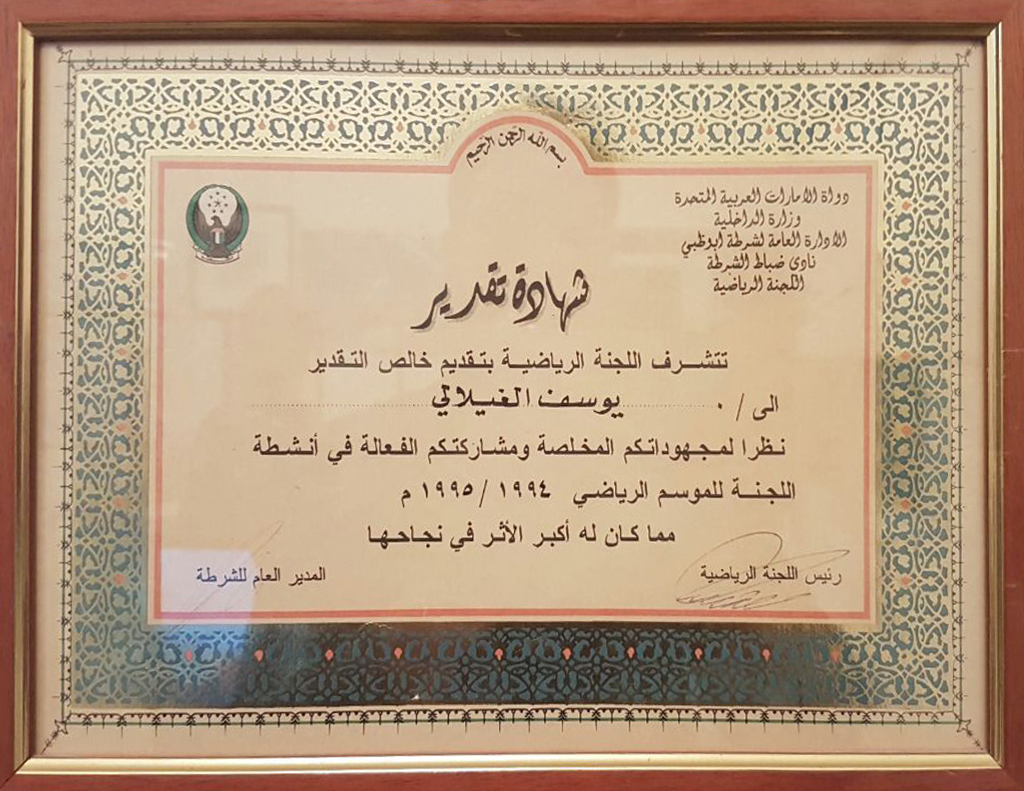 بسم الله الرحمن الرحيم
دولة الامارات العربية المتحدة
وزارة الداخلية
الادارة العامة لشرطة ابوظبي
نادي ضباط الشرطة
اللجنة الرياضية
شهادة تقدير
تتشرف اللجنة الرياضية بتقديم خالص التقدير
الى / يوسف الغيلاني
نظرا لمجهوداتكم المخلصة ومشاركتكم الفعالة في أنشطة
اللجنة للموسم الرياضي ١٩٩٤ / ١٩٩٥ م
مما كان له أكبر الأثر في نجاحها
رئيس اللجنة الرياضية
المدير العام للشرطة